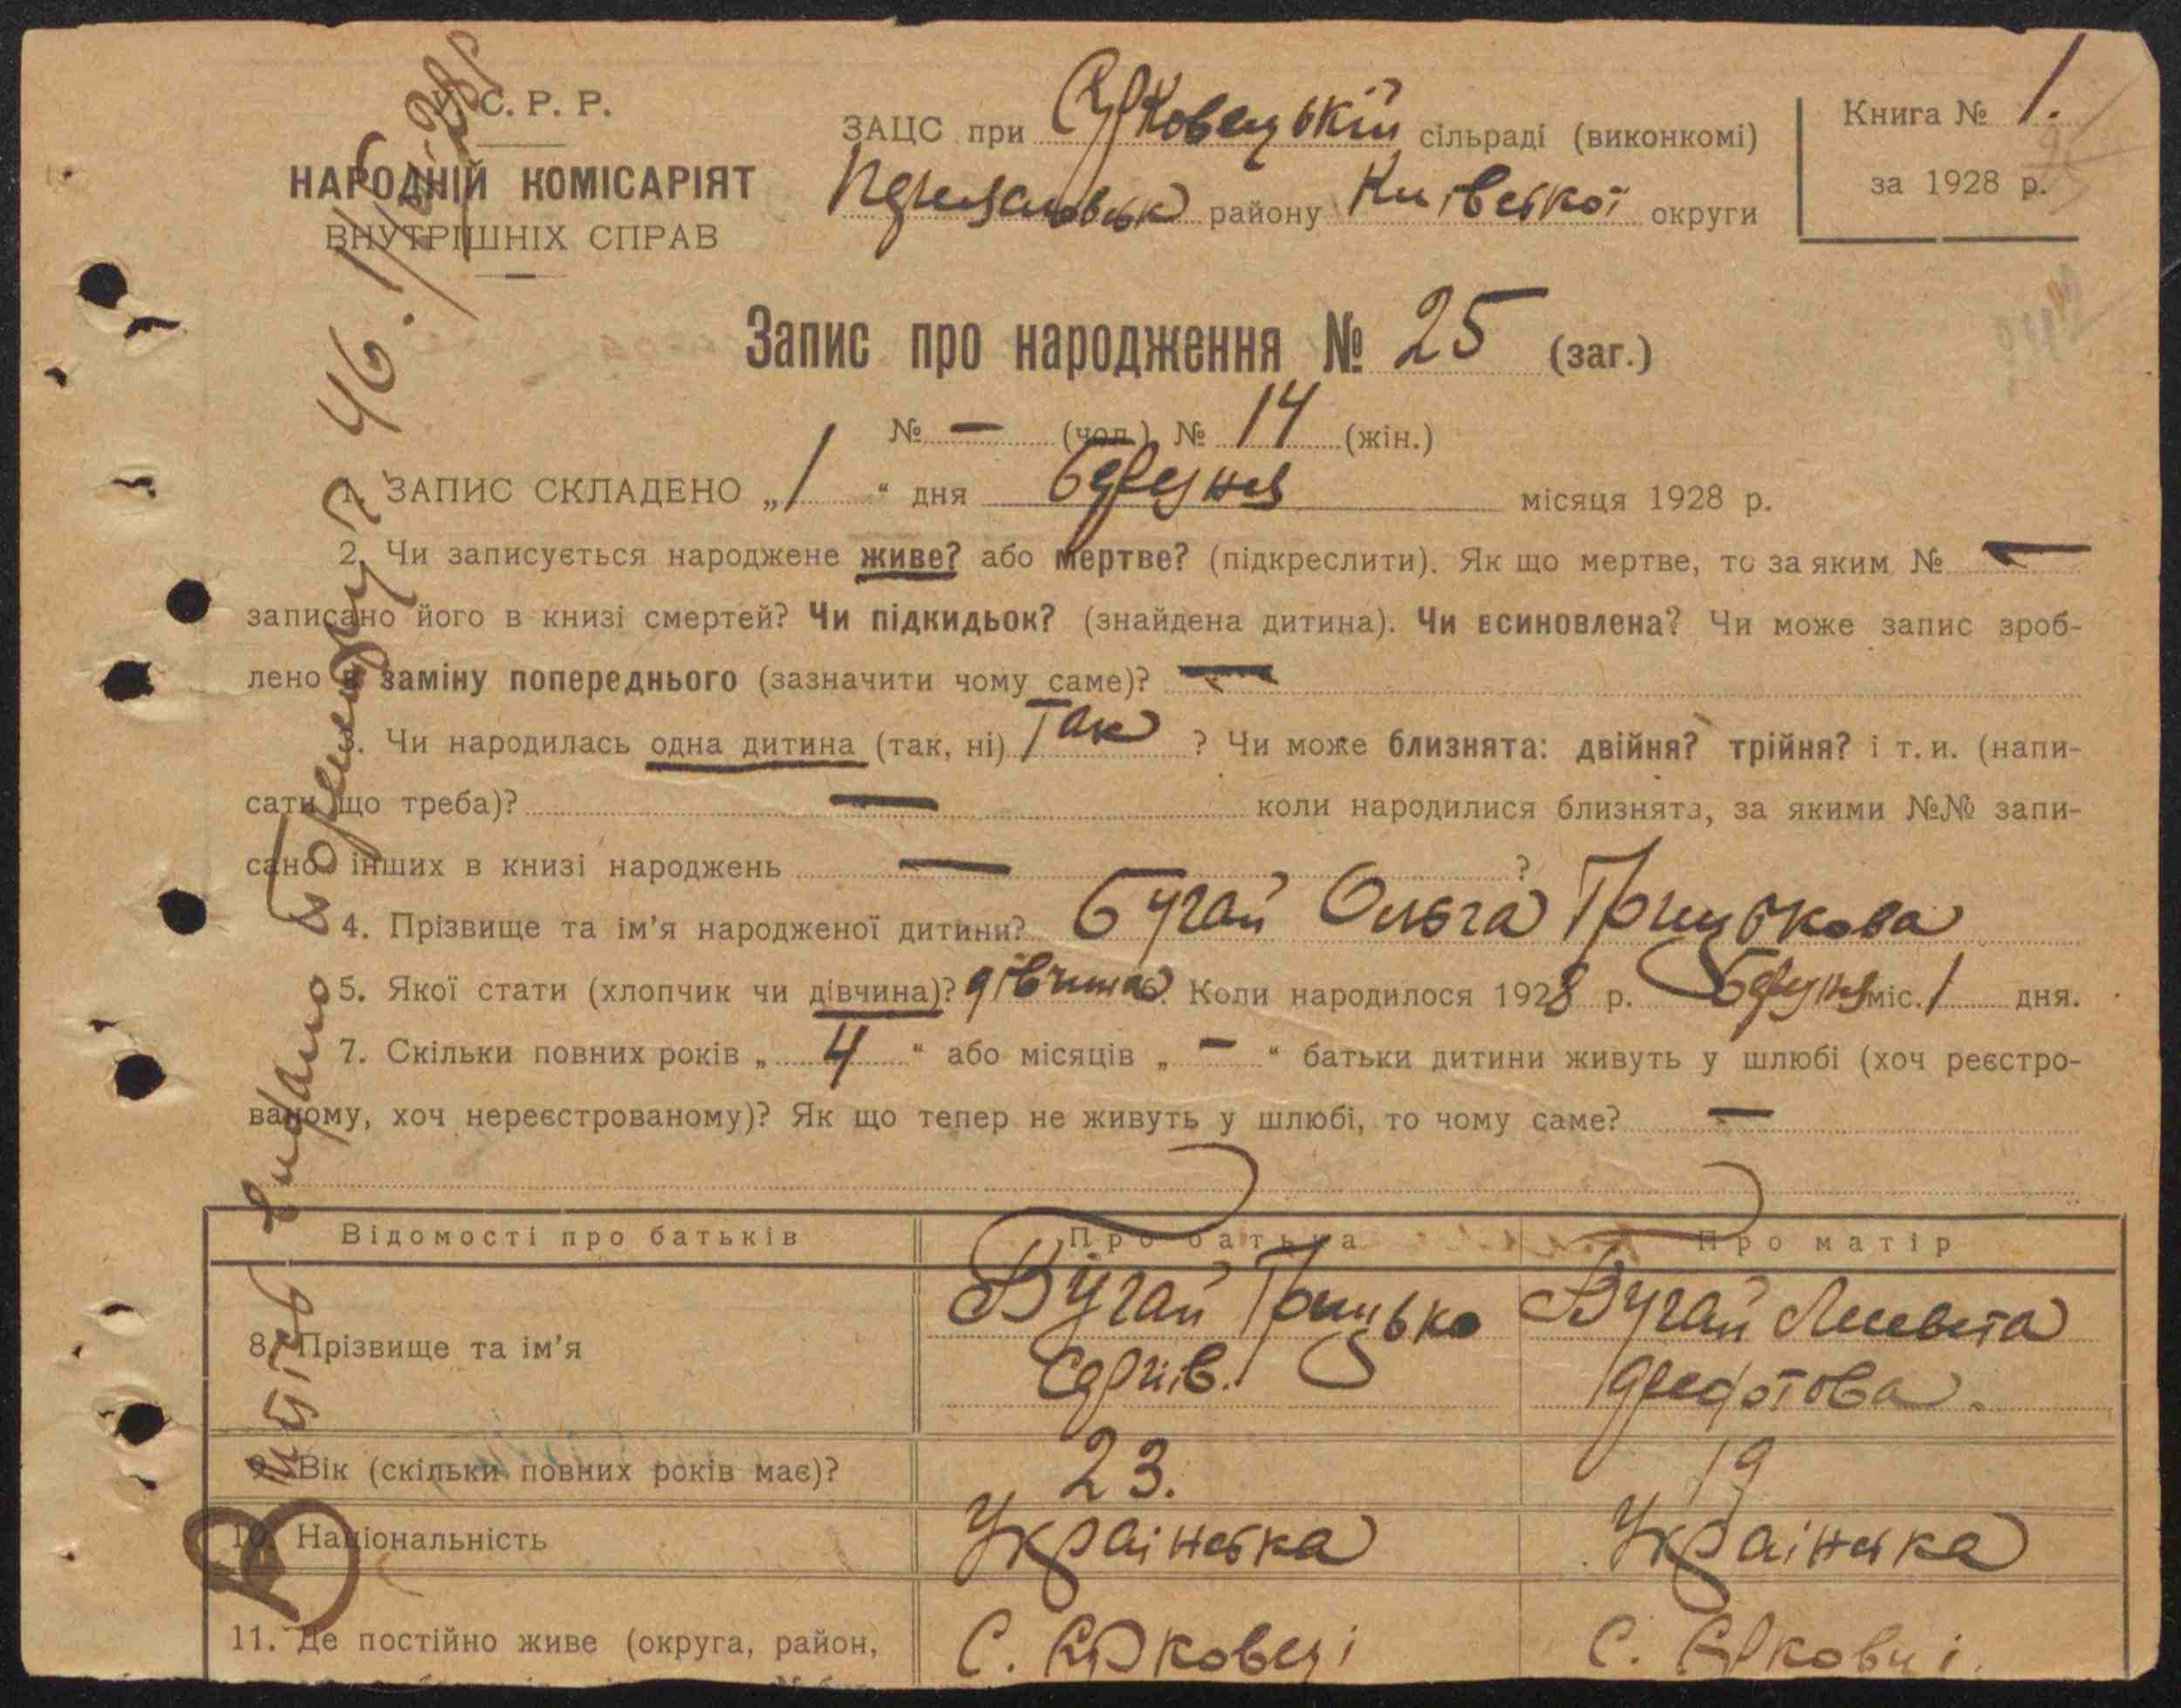 У. С. Р. Р.
НАРОДНІЙ КОМІСАРІЯТ
ВНУТРІШНІХ СПРАВ
ЗАЦС при сільраді (виконкомі)
району Київської округи
Книга № 1.
за 1928 р.
Запис про народження № 25 (заг.)
№ — (чол.) № 14 (жін.)
1. ЗАПИС СКЛАДЕНО „1“ дня березня місяця 1928 р.
2. Чи записується народжене живе? або мертве? (підкреслити). Як що мертве, то за яким № —
записано його в книзі смертей? Чи підкидьок? (знайдена дитина). Чи всиновлена? Чи може запис зроб-
лено в заміну попереднього (зазначити чому саме)? —
3. Чи народилась одна дитина (так, ні) Так ? Чи може близнята: двійня? трійня? і т. и. (напи-
сати що треба)? — коли народилися близнята, за якими №№ запи-
сано інших в книзі народжень — ?
4. Прізвище та ім'я народженої дитини? Бугай Ольга Грицькова
5. Якої стати (хлопчик чи дівчина)? дівчина. Коли народилося 1928 р. березня міс. 1 дня.
7. Скільки повних років „4“ або місяців „—“ батьки дитини живуть у шлюбі (хоч реєстро-
ваному, хоч нереєстрованому)? Як що тепер не живуть у шлюбі, то чому саме? —
Відомості про батьків Про батька Про матір
8. Прізвище та ім'я Бугай Грицько Бугай Лисвета
Сергіїв. Федотова.
9. Вік (скільки повних років має)? 23. 19
10. Національність Українська Українська
11. Де постійно живе (округа, район, С. С.